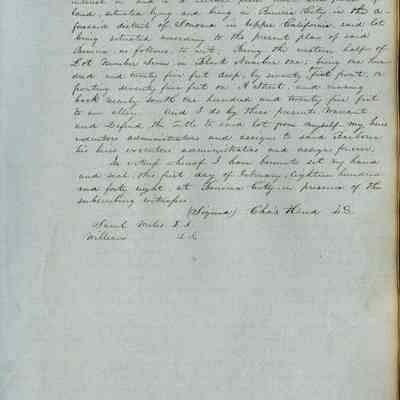 interest in and to a certain
land, situated lying and being in Benicia City, in the a-
foresaid district of Sonoma in Upper California, said lot
being situated according to the present plan of said
Benicia, as follows, to wit, Being the western half of
Lot Number Seven in Block Number one, being one hun-
dred and twenty five feet deep, by seventy feet front, or
fronting seventy five feet on A Street, and running
back nearly South one hundred and twenty five feet
to an alley. And I do by these presents, Warrant
and Defend the title to said lot from myself, my heirs
executors administrators and assigns to said
his heirs executors administrators and assigns forever.
In witness whereof I have hereunto set my hand
and seal, this first day of February, eighteen hundred
and forty eight, at Benicia City in presence of the
subscribing witnesses.
(Signed) Chas Heud L.S.
Saml. Miles L.S.
William L.S.